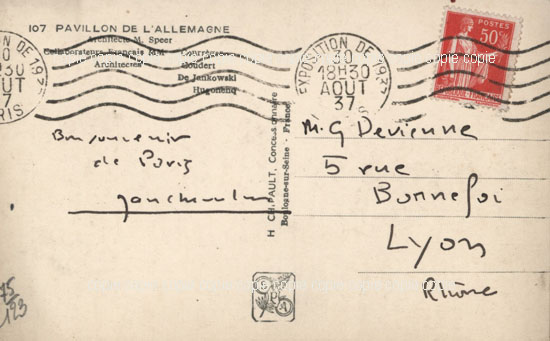 107 PAVILLON DE L'ALLEMAGNE
Architecte M. Speer
Collaborateurs Français MM. Courrèges
Architectes Coudert
De Jankowski
Hugonenq
EXPOSITION DE 1937
30
18H30
AOUT
37
PARIS
EXPOSITION DE 1937
30
18H30
AOUT
37
POSTES
50c
copie copie
Bon souvenir
de Paris
H. CH. PAULT, Concessionnaire
Boulogne-sur-Seine - France
M. G Devienne
5 rue
Bonnefoi
Lyon
Rhône
75
123